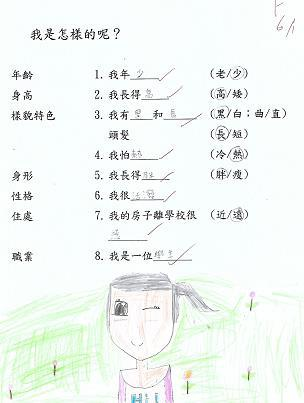 6/1
我是怎樣的呢？
年齡 1. 我年少 (老/少)
身高 2. 我長得高 (高/矮)
樣貌特色 3. 我有黑和長 (黑/白；曲/直)
頭髮 (長/短)
4. 我怕熱 (冷/熱)
身形 5. 我長得胖 (胖/瘦)
性格 6. 我很活潑
住處 7. 我的房子離學校很 (近/遠)
遠
職業 8. 我是一位學生